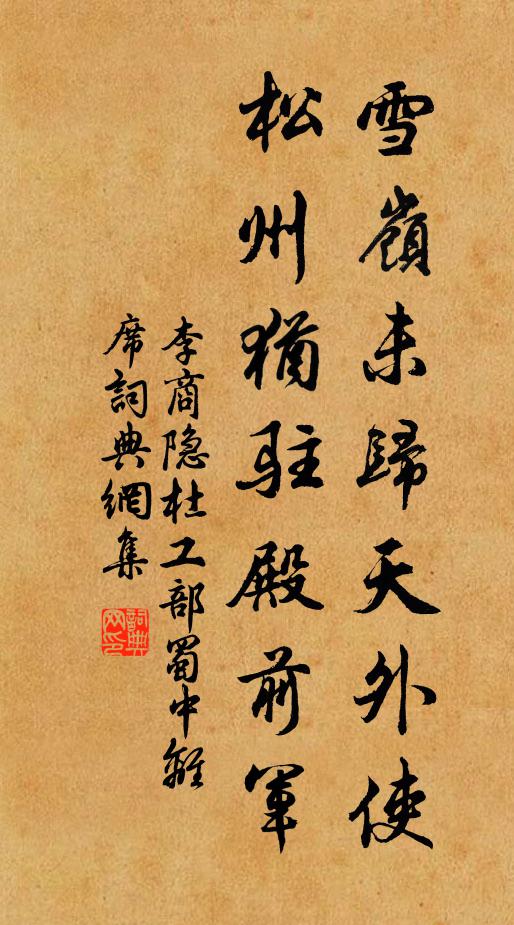 雪嶺未歸天外使
松州猶駐殿前軍
李商隐杜工部蜀中離
席詞典網集
詞典
网印